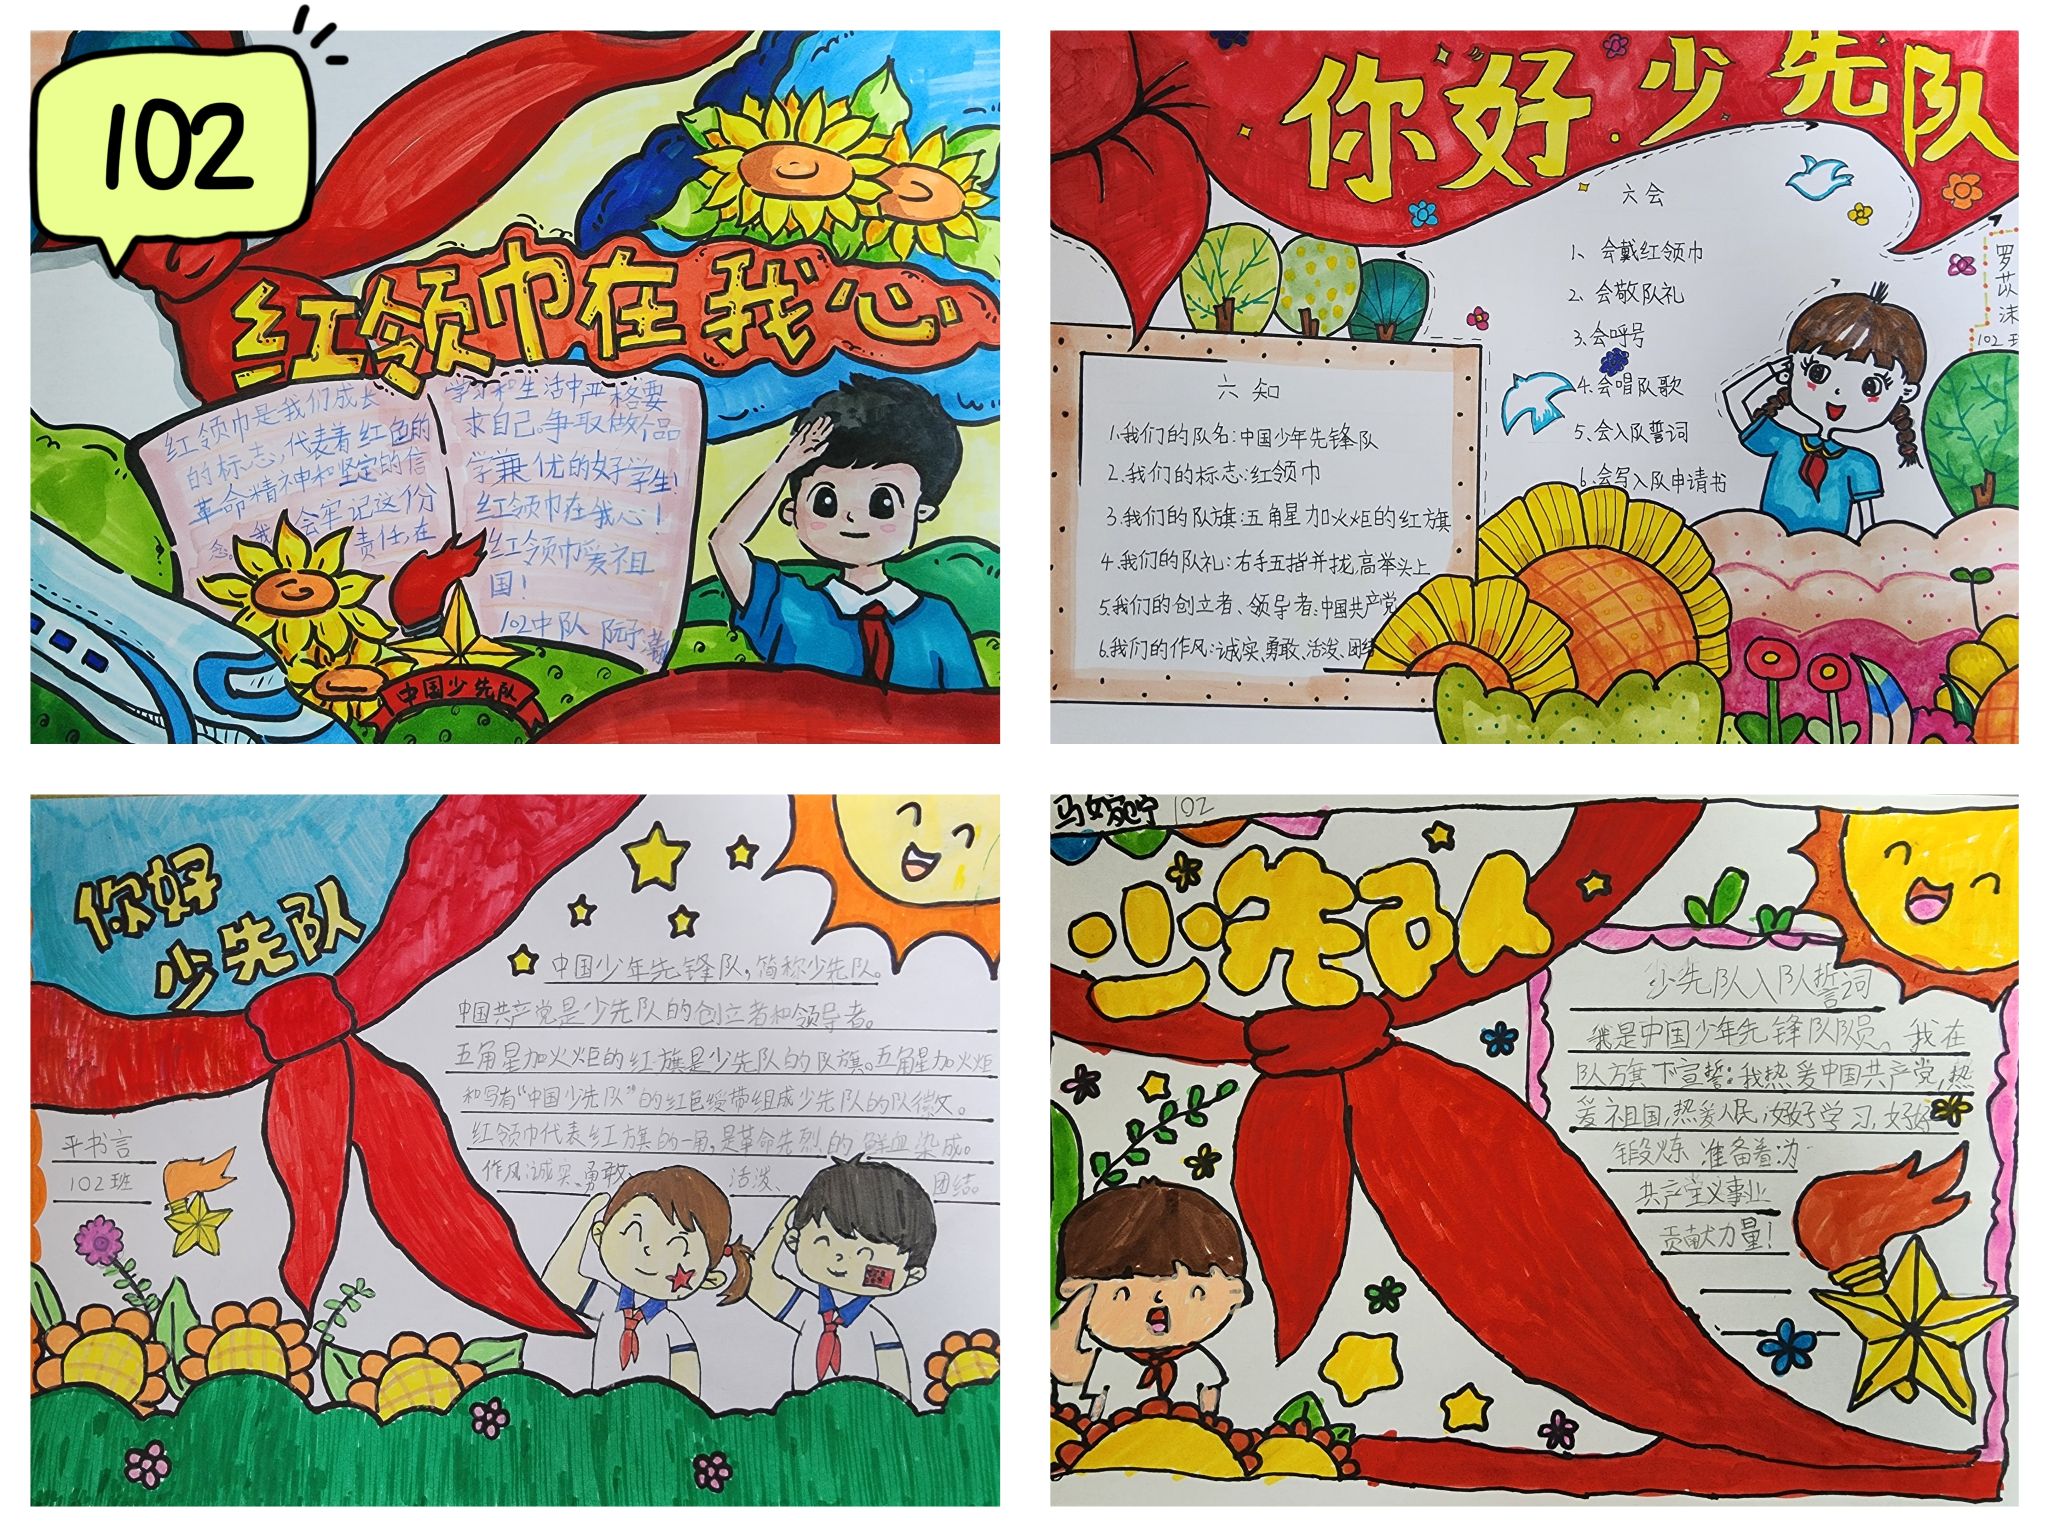 102
红领巾在我心
红领巾是我们成长
的标志,代表着红色的
革命精神和坚定的信
念。我 会牢记这份
责任,在
学习和生活中严格要
求自己。争取做个品
学兼优的好学生!
红领巾在我心!
红领巾爱祖
国!
102中队
中国少先队
你好少先队
六会
1、会戴红领巾
2、会敬队礼
3、会呼号
4、会唱队歌
5、会入队誓词
6、会写入队申请书
102班
六知
1.我们的队名:中国少年先锋队
2.我们的标志:红领巾
3.我们的队旗:五角星加火炬的红旗
4.我们的队礼:右手五指并拢,高举头上
5.我们的创立者、领导者:中国共产党
6.我们的作风:诚实、勇敢、活泼、团结
你好
少先队
中国少年先锋队,简称少先队。
中国共产党是少先队的创立者和领导者。
五角星加火炬的红旗是少先队的队旗。五角星加火炬
和写有“中国少先队”的红色绶带组成少先队的队徽。
红领巾代表红旗的一角,是革命先烈的鲜血染成。
作风:诚实、勇敢、活泼、团结。
平书言
102班
102
少先队
少先队入队誓词
我是中国少年先锋队队员。我在
队旗下宣誓:我热爱中国共产党,热
爱祖国,热爱人民,好好学习,好好
锻炼 准备着:为
共产主义事业
贡献力量!